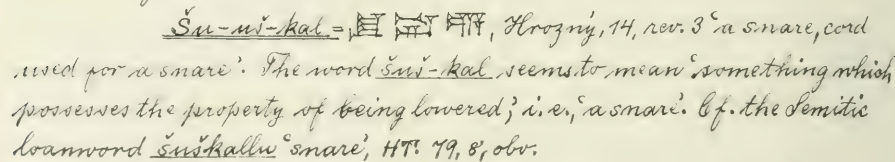 Šu-uš-kal = , Hrozný, 14, rev. 3 'a snare, cord
used for a snare'. The word šuš-kal seems to mean 'something which
possesses the property of being lowered', i.e., 'a snare'. Cf. the Semitic
loanword šuškallu 'snare', HT. 79, 8, obv.